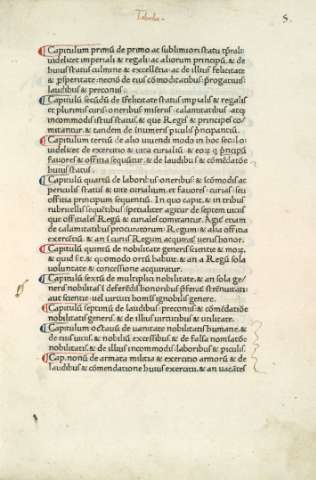 Tabula.
S.
Capitulum primũ de primo ac sublimiori statu tp̃rali:
uidelicet imperiali & regali: ac aliorum principũ, & de
huius status culmine & excellẽtia: ac de illius felicitate
& p̱speritate: necnõ de eius cõmoditatibus: p̱rogatiuis
laudibus & preconiis.
Capitulum secũdũ de ĩfelicitate status ĩpialis & regalis
et plurimis curis: oneribus: miseriis: calamitatibus: atq;
incommodis istius status, & que Reges & principes co-
mitantur, & tandem de inumeris piculis prĩcipantiũ.
Capitulum tertiũ: de alio uiuendi modo in hoc seculo:
uidelicet de exercitio & uita curialiũ, & eoꝝ q prĩcipũ
fauores & officia sequũtur, & de laudibus & cõmẽdatõe
huius status.
Capitulũ quartũ de laboribus: oneribus: & ĩcõmodis: ac
periculis status & uite curialium: et fauores curias: seu
officia principum sequentiũ. In quo capite, & in tribus
rubruellis sequẽtibus: specialiter agitur de septem uiciis
que officiales Regũ & curiales comitantur. Agit̃ etiam
de calamitatibus procuratorum Regum, & alia officia
exercẽtiũ, & an ĩ curis Regum acquirat̃ uerus honor.
Capitulũ quintũ de nobilitate generis: scientie & mor,
& quid sit: & quomodo ortũ habuit, & an a Regũ sola
uoluntate & concessione acquiratur.
Capitulũ sextũ de multiplici nobilitate, & an sola ge/
neris nobilitas ĩ deferẽdis honoribus p̱ferat̃ strẽnuitati:
aut scientie uel uirtuti homĩs ignobilis genere.
Capitulũ septimũ de laudibus: preconiis: & cõmẽdatiõe
nobilitatis generis, & de illius uirtutibus & utilitate.
Capitulum octauũ de uanitate nobilitatis humane, &
de eius uitiis, & nobiliũ excessibus: & de falsa nomĩatõe
nobilitatis, & de illius incommodis: laboribus & piculis.
Cap. nonũ de armata militia & exercitio armorũ & de
laudibus & cõmendatione huius exercitii, & an uacãtes